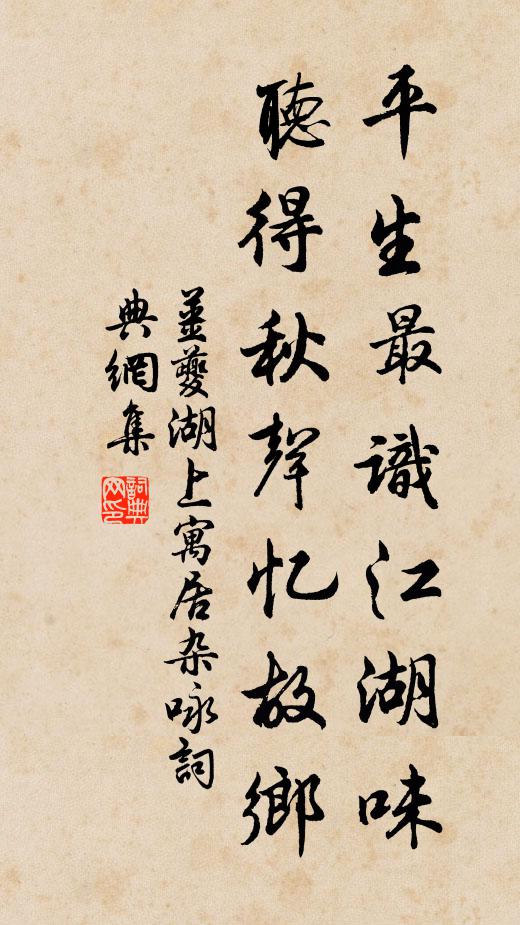 平生最識江湖味
聽得秋聲忆故鄉
姜夔湖上寓居杂咏詞
典網集
詞典網印